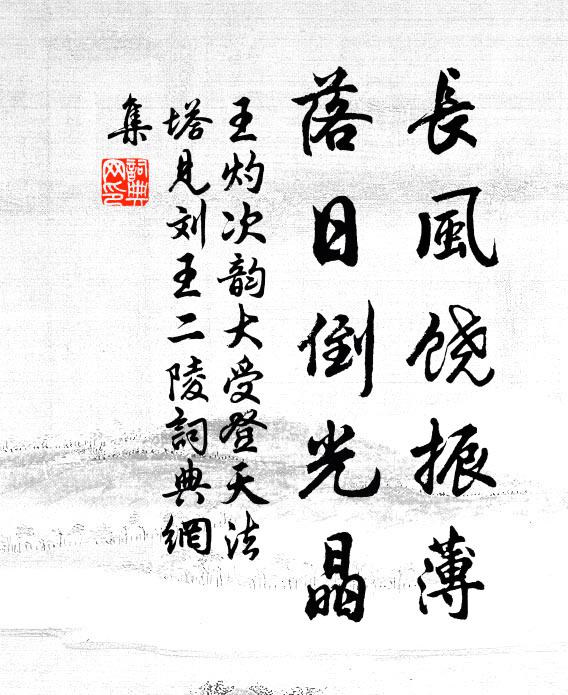 長風饶振薄
落日倒光晶
王灼次韵大受登天法
塔見刘王二陵詞典網
集
詞典
网印